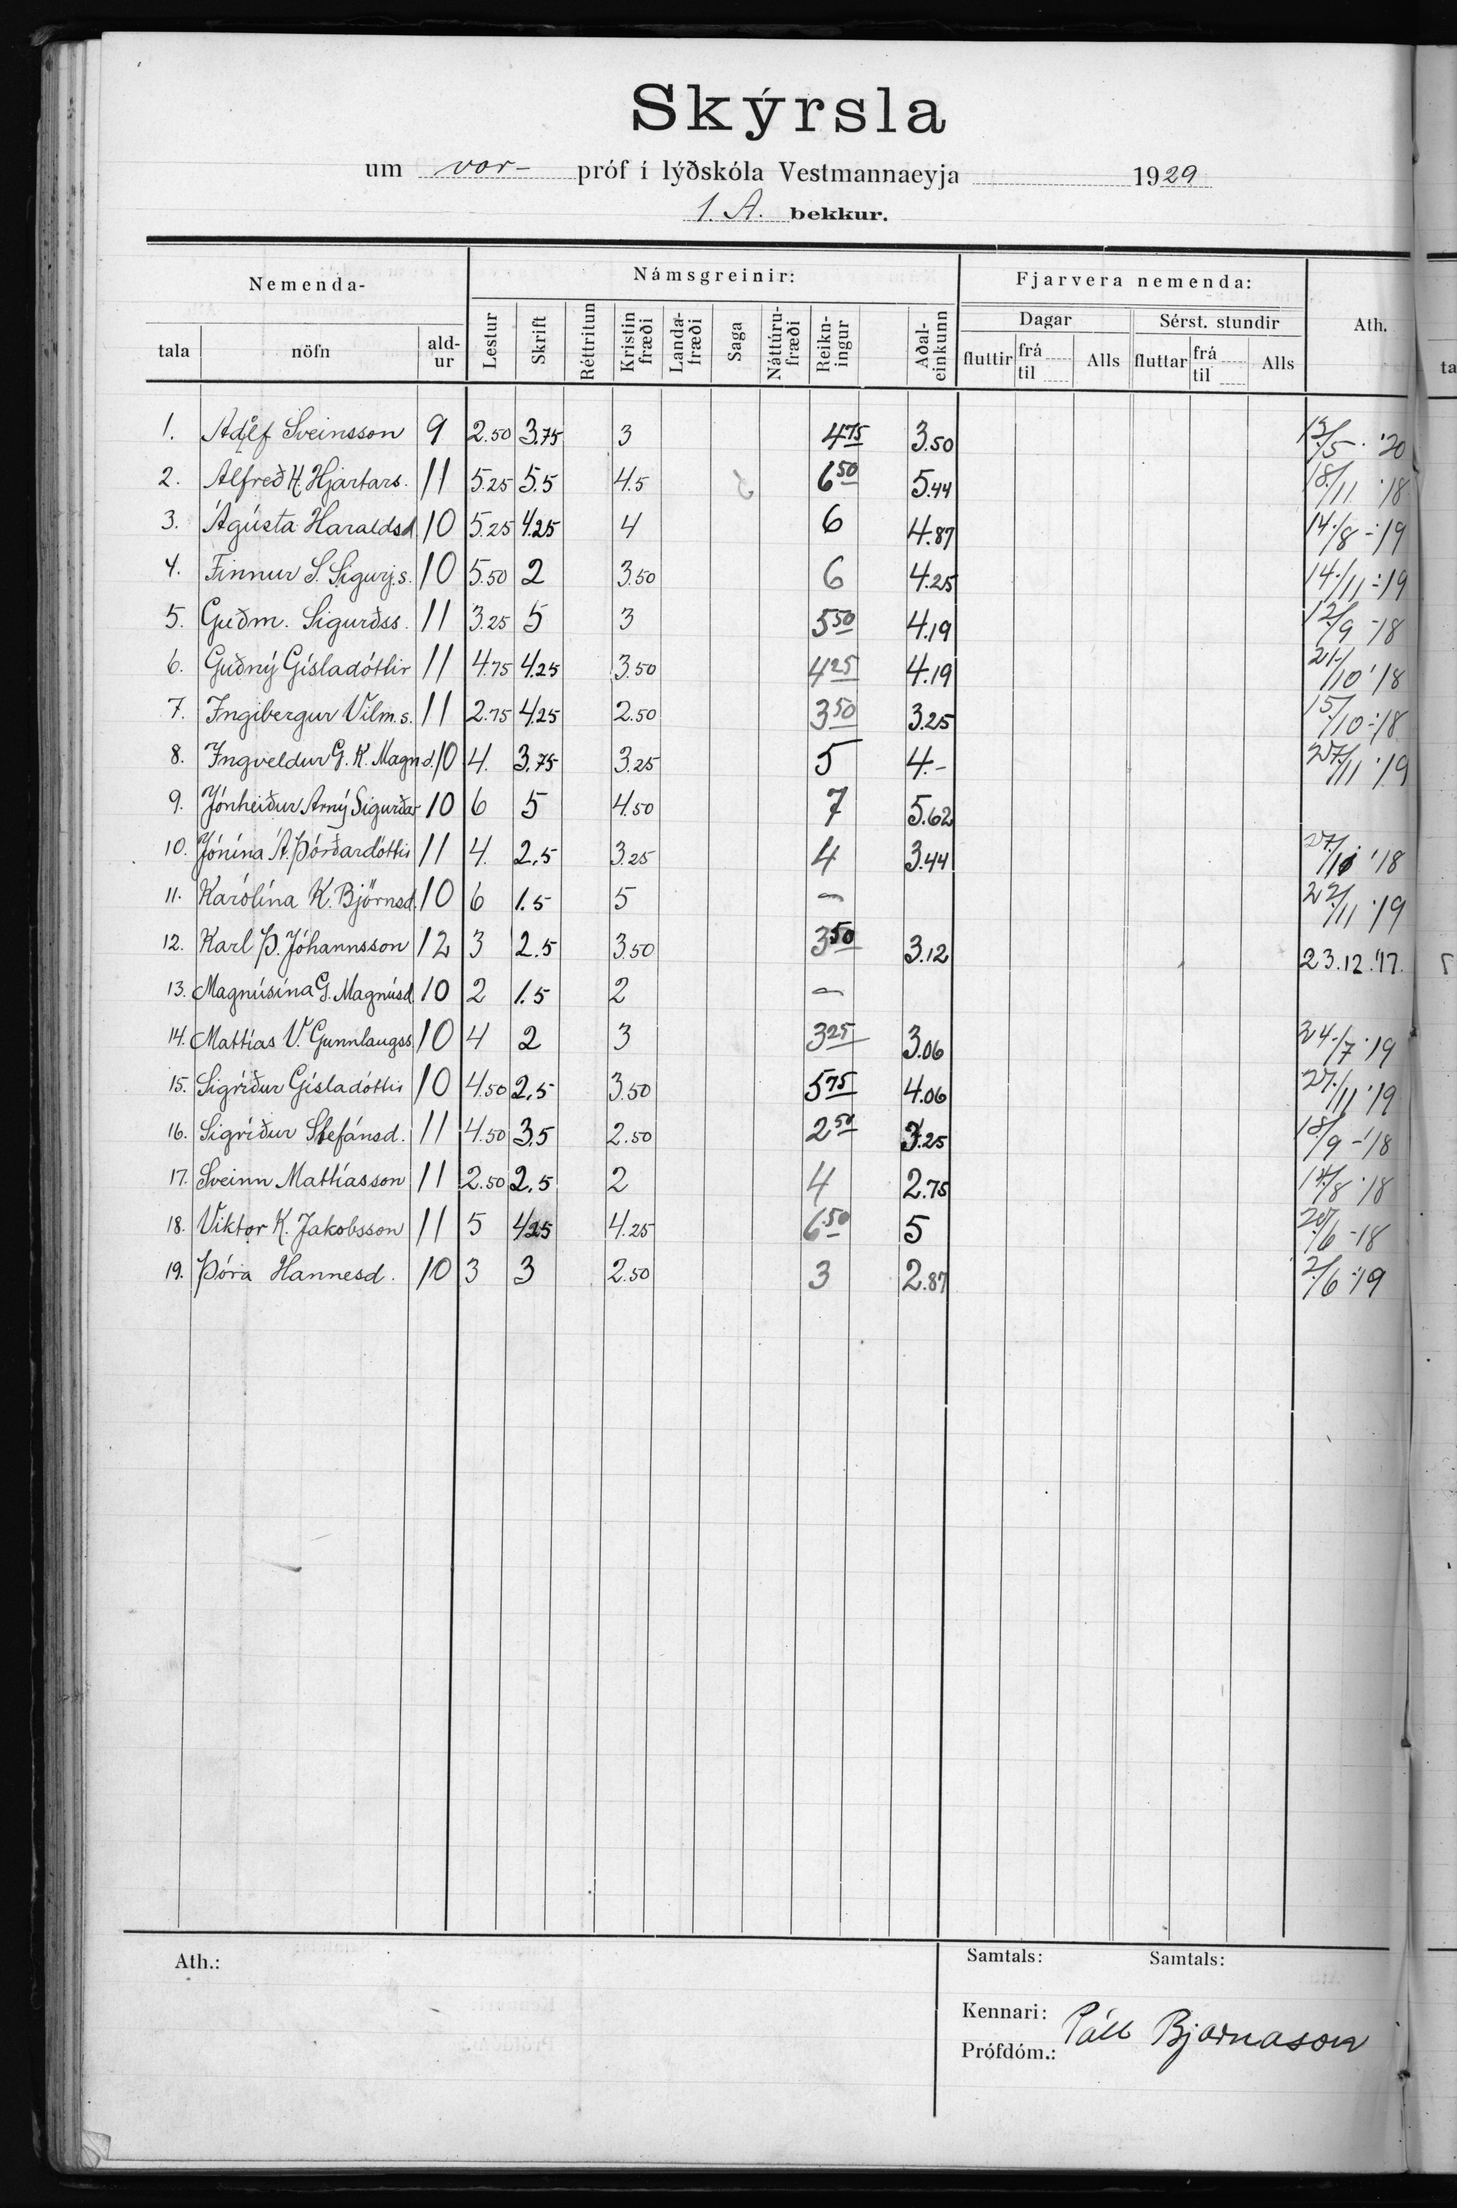 Skýrsla
um vor- próf í lýðskóla Vestmannaeyja 1929
1. A. bekkur.
Nemenda- Námsgreinir: Fjarvera nemenda: Ath.
tala nöfn ald-ur Lestur Skrift Réttritun Kristin fræði Landa-fræði Saga Náttúru-fræði Reikn-ingur Aðal-einkunn Dagar Sérst. stundir
fluttir frá til Alls fluttar frá til Alls
1. Adolf Sveinsson 9 2.50 3.75 3 4 75 3.50 '20
2. Alfreð H. Hjartars. 11 5.25 5.5 4.5 6 50 5.44 18/11 '18
3. Ágústa Haraldsd 10 5.25 4.25 4 6 4.87 14/8 - '19
4. Finnur S. Sigurj.s. 10 5.50 2 3.50 6 4.25 14/11 - '19
5. Guðm. Sigurðss. 11 3.25 5 3 5 50 4.19 12/9 -18
6. Guðný Gísladóttir 11 4.75 4.25 3.50 4 25 4.19 21/10 '18
7. Ingibergur Vilm.s. 11 2.75 4.25 2.50 3 50 3.25 15/10 - '18
8. Ingveldur G. K. Magnd. 10 4. 3.75 3.25 5 4.- 27/11 '19
9. Jónheiður Arný Sigurðar 10 6 5 4.50 7 5.62
10. Jónína Á. Þórðardóttir 11 4. 2.5 3.25 4 3.44 '18
11. Karólína K. Björnsd. 10 6 1.5 5 - 22/11 '19
12. Karl Þ. Jóhannsson 12 3 2.5 3.50 3 50 3.12 23.12.'17.
13. Magnúsína G. Magnúsd 10 2 1.5 2 -
14. Mattías V. Gunnlaugss. 10 4 2 3 3 25 3.06 24/7 '19
15. Sigríður Gísladóttir 10 4.50 2.5 3.50 5 75 4.06 27/11 '19
16. Sigríður Stefánsd. 11 4.50 3.5 2.50 2 50 3.25 18/9 - '18
17. Sveinn Mattíasson 11 2.50 2.5 2 4 2.75 '18
18. Viktor K. Jakobsson 11 5 4.25 4.25 6 50 5 20/6 -18
19. Þóra Hannesd. 10 3 3 2.50 3 2.87 2/6 '19
Ath.: Samtals: Samtals:
Kennari: Páll Bjarnason
Prófdóm.: